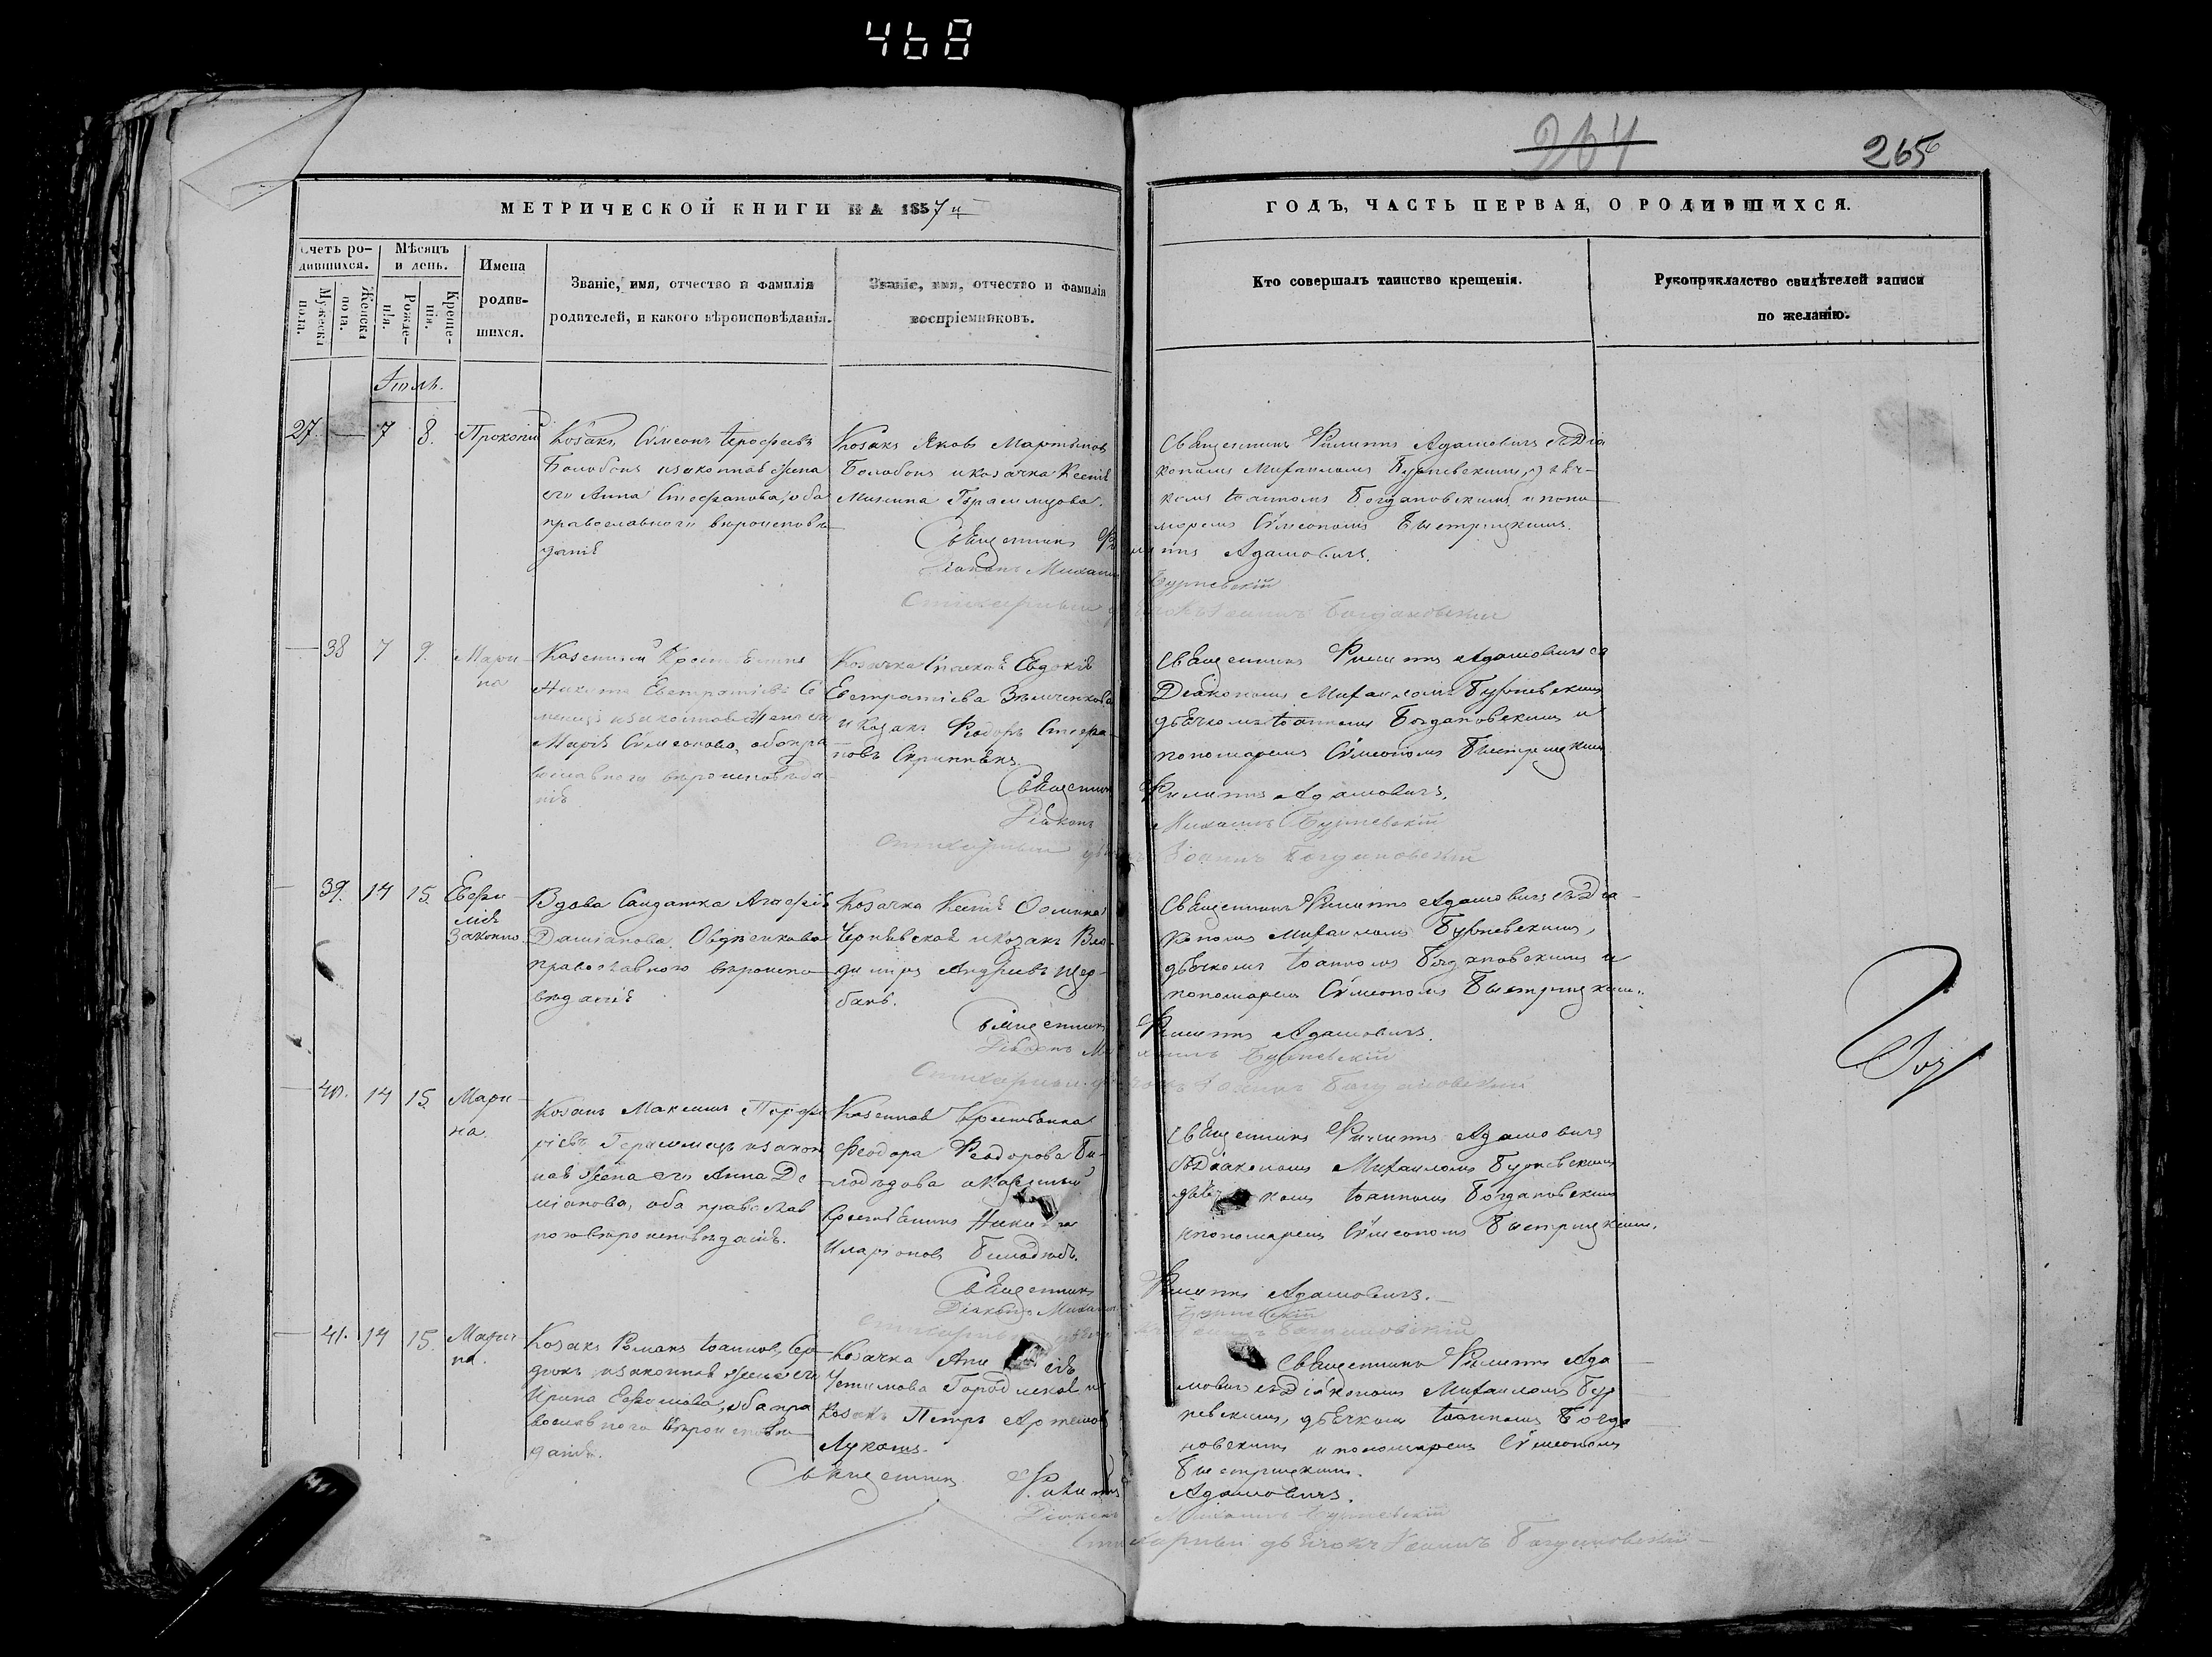 468
264
265
МЕТРИЧЕСКОЙ КНИГИ НА 1857й
ГОДЪ, ЧАСТЬ ПЕРВАЯ, О РОДИВШИХСЯ.
Счетъ родившихся.
Мужеска пола.
Женска пола.
Мѣсяцъ и день.
Рожденія.
Крещенія.
Имена родившихся.
Званіе, имя, отчество и фамилія
родителей, и какого вѣроисповѣданія.
Званіе, имя, отчество и фамилія
воспріемниковъ.
Кто совершалъ таинство крещенія.
Рукоприкладство свидѣтелей записи
по желанію.
Іюль.
27. — 7 8. Прокопій
Козакъ Сѵмеонъ Ерофеевъ
Болобонъ и законная жена
его Анна Стефанова, оба
православнаго вѣроисповѣ-
данія
Козакъ Яковъ Мартыновъ
Болобонъ и козачка Ксенія
Священникъ Филиппъ Адамовичъ съ Діа
кономъ Михаиломъ Бурневскимъ, дьяч-
комъ Іоанномъ Богдановскимъ и поно-
маремъ Сѵмеономъ Быстрицкимъ.
Священникъ Филиппъ Адамовичъ.
Діаконъ Михаилъ Бурневскій
Стихарный дьячокъ Іоаннъ Богдановскій
— 38 7 9. Мари-
на
Казенный Крестьянинъ
Никита Евстратіевъ Се
и законная жена его
Марія Сѵмеонова, оба пра
вославнаго вѣроисповѣда-
нія
Козачка Евдокія
Евстратіева
и Козакъ Феодоръ Стефа-
новъ Скрипникъ.
Священникъ Филиппъ Адамовичъ съ
Діакономъ Михаиломъ Бурневскимъ
дьячкомъ Іоанномъ Богдановскимъ и
пономаремъ Сѵмеономъ Быстрицкимъ
Священникъ Филиппъ Адамовичъ.
Діаконъ Михаилъ Бурневскій
Стихарный дьячокъ Іоаннъ Богдановскій
— 39. 14 15. Евфи-
мія
Вдова Солдатка Агафія
Даміанова Овдѣенкова
православнаго вѣроиспо-
вѣданія
Козачка Ксенія
и козакъ Вла-
диміръ Андріевъ Щер-
банъ.
Священникъ Филиппъ Адамовичъ съ Діа-
кономъ Михаиломъ Бурневскимъ,
дьячкомъ Іоанномъ Богдановскимъ и
пономаремъ Сѵмеономъ Быстрицкимъ.
Священникъ Филиппъ Адамовичъ.
Діаконъ Михаилъ Бурневскій
Стихарный дьячокъ Іоаннъ Богдановскій
— 40. 14 15. Мари-
на.
Козакъ Максимъ Порфи
ріевъ Герасимецъ и закон
ная жена его Анна Де-
міанова, оба православ
наго вѣроисповѣданія.
Казенная Крестьянка
Феодора Феодорова Би-
лодѣдова и Казенный
Крестьянинъ Никита
Иларіоновъ Билодѣдъ.
Священникъ Филиппъ Адамовичъ
съ Діакономъ Михаиломъ Бурневскимъ
дьячкомъ Іоанномъ Богдановскимъ
и пономаремъ Сѵмеономъ Быстрицкимъ.
Священникъ Филиппъ Адамовичъ.
Діаконъ Михаилъ Бурневскій
Стихарный дьячокъ Іоаннъ Богдановскій
— 41. 14 15. Мари-
на.
Козакъ Романъ Іоанновъ Сер-
дюкъ и законная жена его
Ирина Ефремова, оба пра
вославнаго вѣроисповѣ-
данія.
Козачка
Устимова
Козакъ Петръ Артемовъ
Лукашъ.
Священникъ Филиппъ Ада-
мовичъ съ Діакономъ Михаиломъ Бур-
невскимъ, дьячкомъ Іоанномъ Богда
новскимъ и пономаремъ Сѵмеономъ
Быстрицкимъ.
Священникъ Филиппъ Адамовичъ.
Діаконъ Михаилъ Бурневскій
Стихарный дьячокъ Іоаннъ Богдановскій